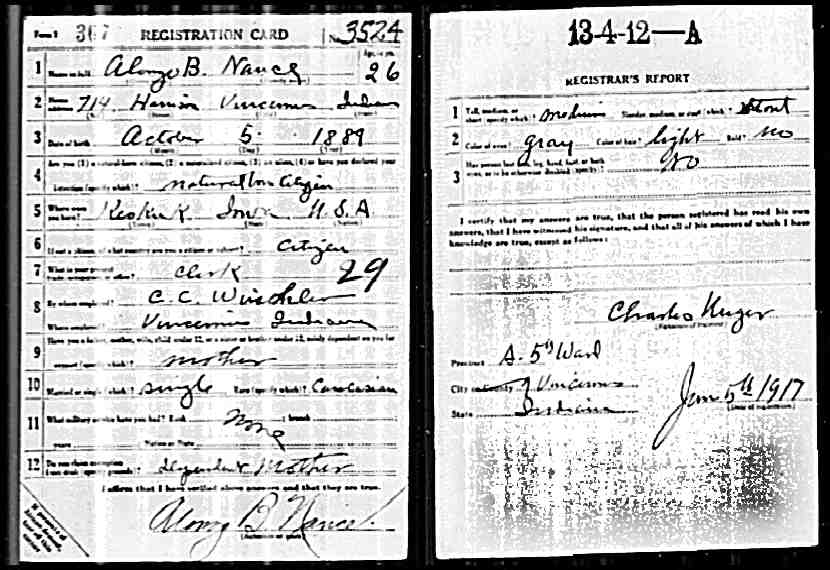 Form 1 307 REGISTRATION CARD No. 3524
1 Name in full Alonzo B. Nance Age, in yrs. 26
2 Home address 714 Harrison Vincennes Indiana
3 Date of birth October 5 1889
(Month) (Day) (Year)
4 Are you (1) a natural-born citizen, (2) a naturalized citizen, (3) an alien, (4) or have you declared your
intention (specify which)? Natural born Citizen
5 Where were you born? Keokuk Iowa U.S.A
(Town) (State) (Nation)
6 If not a citizen, of what country are you a citizen or subject? Citizen
7 What is your present Clerk 29
8 By whom employed? C. C. Winschler
Where employed? Vincennes Indiana
9 Have you a father, mother, wife, child under 12, or a sister or brother under 12, solely dependent on you for
support (specify which)? mother
10 Married or single (which)? single Race (specify which)? Caucasian
11 What military service have you had? Rank None branch
years Nation or State
12 Do you claim exemption from draft (specify grounds)? dependent Mother
I affirm that I have verified above answers and that they are true.
Alonzo B. Nance
(Signature or mark)
13-4-12-A
REGISTRAR'S REPORT
1 Tall, medium, or short (specify which)? medium Slender, medium, or stout (which)? Stout
2 Color of eyes? gray Color of hair? light Bald? No
3 Has person lost arm, leg, hand, foot, or both eyes, or is he otherwise disabled (specify)? No
I certify that my answers are true, that the person registered has read his own
answers, that I have witnessed his signature, and that all of his answers of which I have
knowledge are true, except as follows:
Charles
(Signature of registrar)
Precinct A. 5th Ward
City or County Vincennes
State Indiana
Jun 5th 1917
(Date of registration)